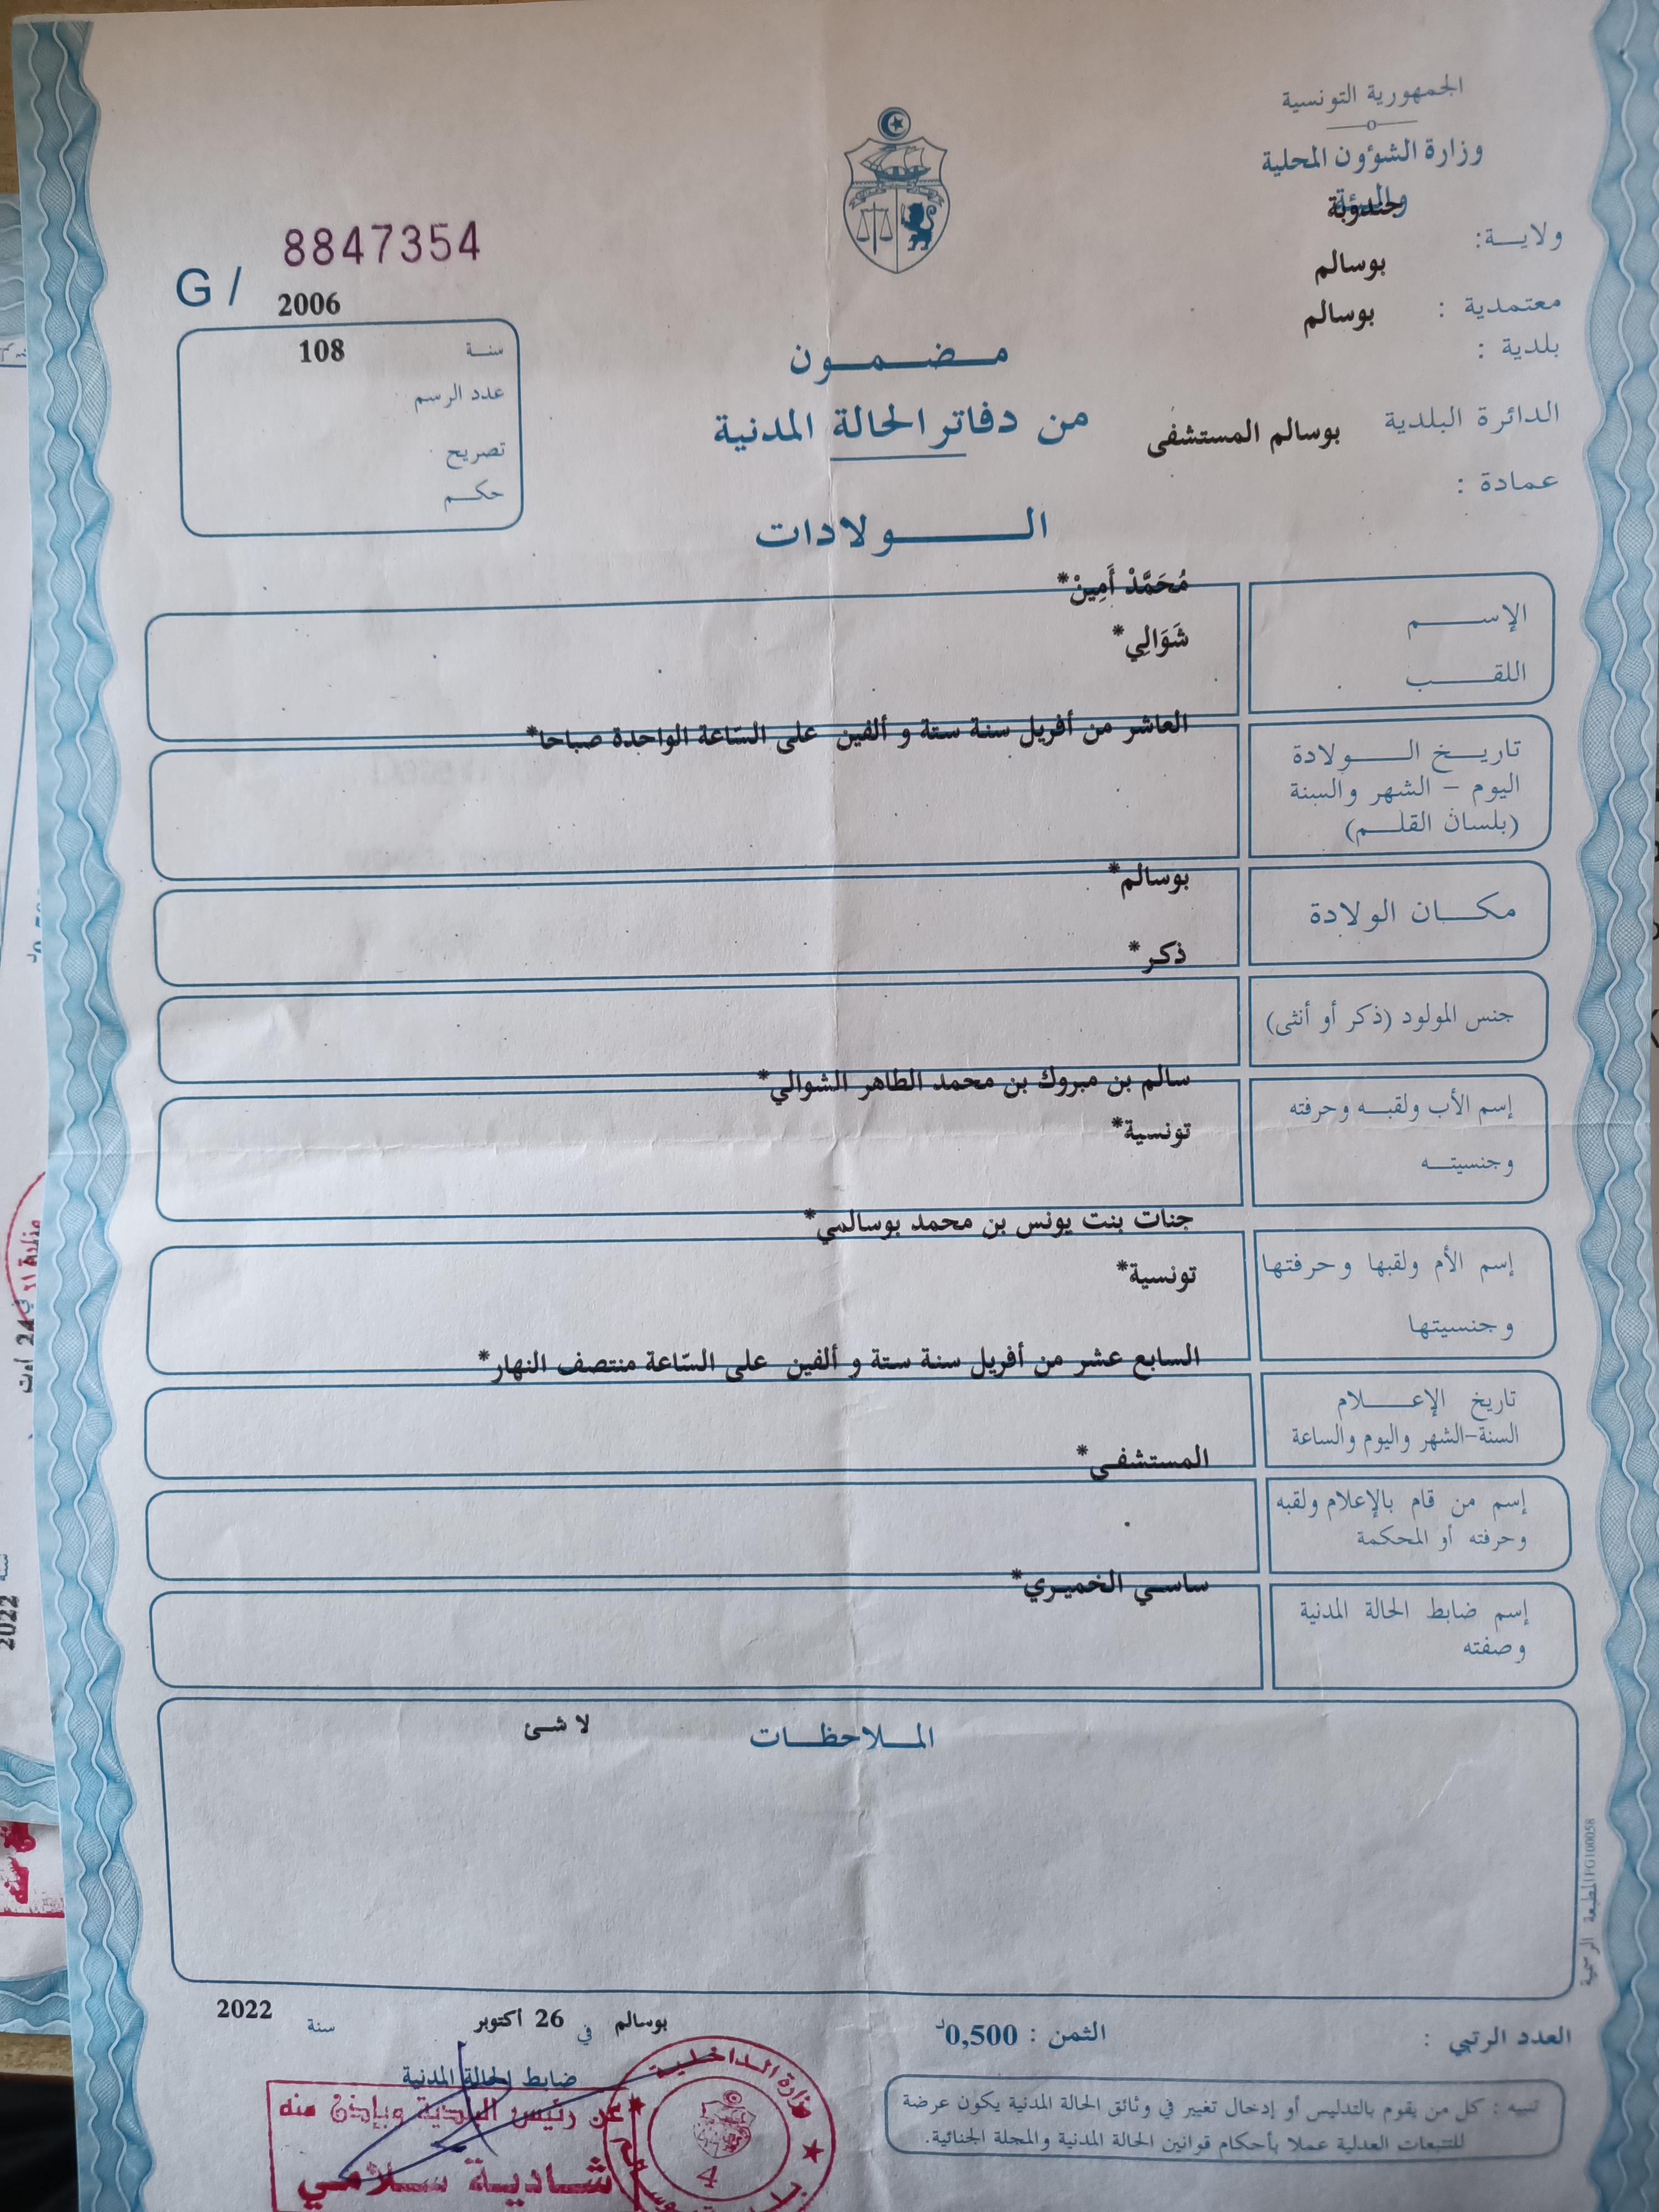 الجمهورية التونسية
وزارة الشؤون المحلية
والبيئة
ولاية: جندوبة
معتمدية : بوسالم
بلدية : بوسالم
الدائرة البلدية بوسالم المستشفى
عمادة :
8847354
G /
2006
سنة 108
عدد الرسم
تصريح
حكم
مضمون
من دفاتر الحالة المدنية
الولادات
الإسم مُحَمَّدْ أَمِينْ*
اللقب شَوَالِي*
تاريخ الولادة العاشر من أفريل سنة ستة و ألفين على السّاعة الواحدة صباحا*
اليوم - الشهر والسنة
(بلسان القلم)
مكان الولادة بوسالم*
ذكر*
جنس المولود (ذكر أو أنثى)
سالم بن مبروك بن محمد الطاهر الشوالي*
إسم الأب ولقبه وحرفته
تونسية*
وجنسيته
جنات بنت يونس بن محمد بوسالمي*
إسم الأم ولقبها وحرفتها
تونسية*
وجنسيتها
السابع عشر من أفريل سنة ستة و ألفين على السّاعة منتصف النهار*
تاريخ الإعلام
السنة-الشهر واليوم والساعة
المستشفى*
إسم من قام بالإعلام ولقبه
وحرفته أو المحكمة
ساسي الخميري*
إسم ضابط الحالة المدنية
وصفته
الملاحظات لا شئ
المطبعة الرسمية FG100058
العدد الرتبي :
الثمن : 0,500د
بوسالم في 26 أكتوبر سنة 2022
ضابط الحالة المدنية
تنبيه : كل من يقوم بالتدليس أو إدخال تغيير في وثائق الحالة المدنية يكون عرضة
للتتبعات العدلية عملا بأحكام قوانين الحالة المدنية والمجلة الجنائية.
عن رئيس البلدية وبإذن منه
شادية سلامي
وزارة الداخلية
4
24 اوت
سنة
2022